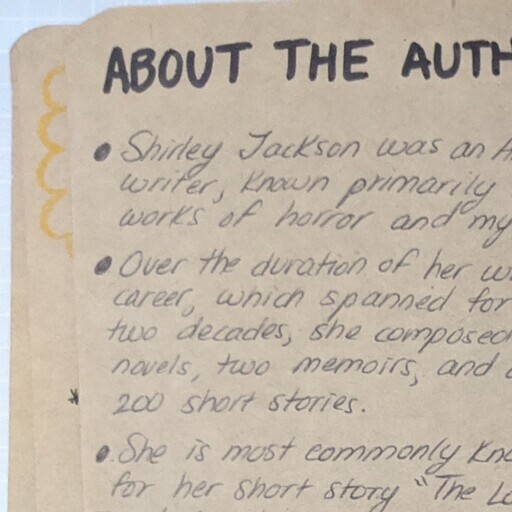 ABOUT THE AUTH
• Shirley Jackson was an A
writer, known primarily
works of horror and my
• Over the duration of her w
career, which spanned for
two decades, she composed
novels, two memoirs, and
200 short stories.
• She is most commonly kno
for her short story "The Lo